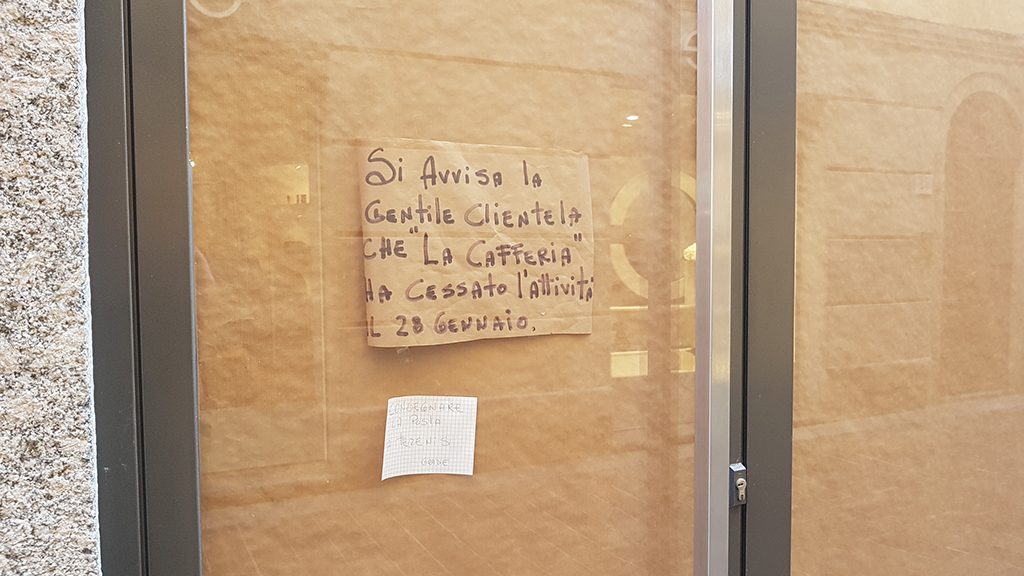 Si Avvisa la
Gentile Clientela
che "La Cafferia"
ha cessato l'attività
il 28 Gennaio.
CONSEGNARE
LA POSTA